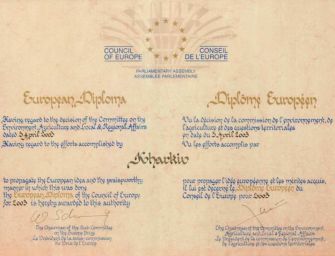 COUNCIL OF EUROPE
CONSEIL DE L'EUROPE
PARLIAMENTARY ASSEMBLY
ASSEMBLÉE PARLEMENTAIRE
European Diploma
Having regard to the decision of the Committee on the
Environment, Agriculture and Local & Regional Affairs
dated 3 April 2003
Having regard to the efforts accomplished by
Diplôme Européen
Vu la décision de la commission de l'environnement, de
l'agriculture et des questions territoriales
en date du 3 April 2003
Vu les efforts accomplis par
Kharkiv
to propagate the European idea and the praiseworthy
manner in which this was done
the European Diploma of the Council of Europe
for 2003 is hereby awarded to this authority
pour propager l'idée européenne et les mérites acquis,
il lui est décerné le Diplôme Européen du
Conseil de l'Europe pour 2003
The Chairman of the Sub-Committee
on the Europe Prize
Le Président de la sous-commission
du Prix de l'Europe
The Chairman of the Committee on the Environment,
Agriculture and Local & Regional Affairs
Le Président de la commission de l'environnement,
de l'agriculture et des questions territoriales